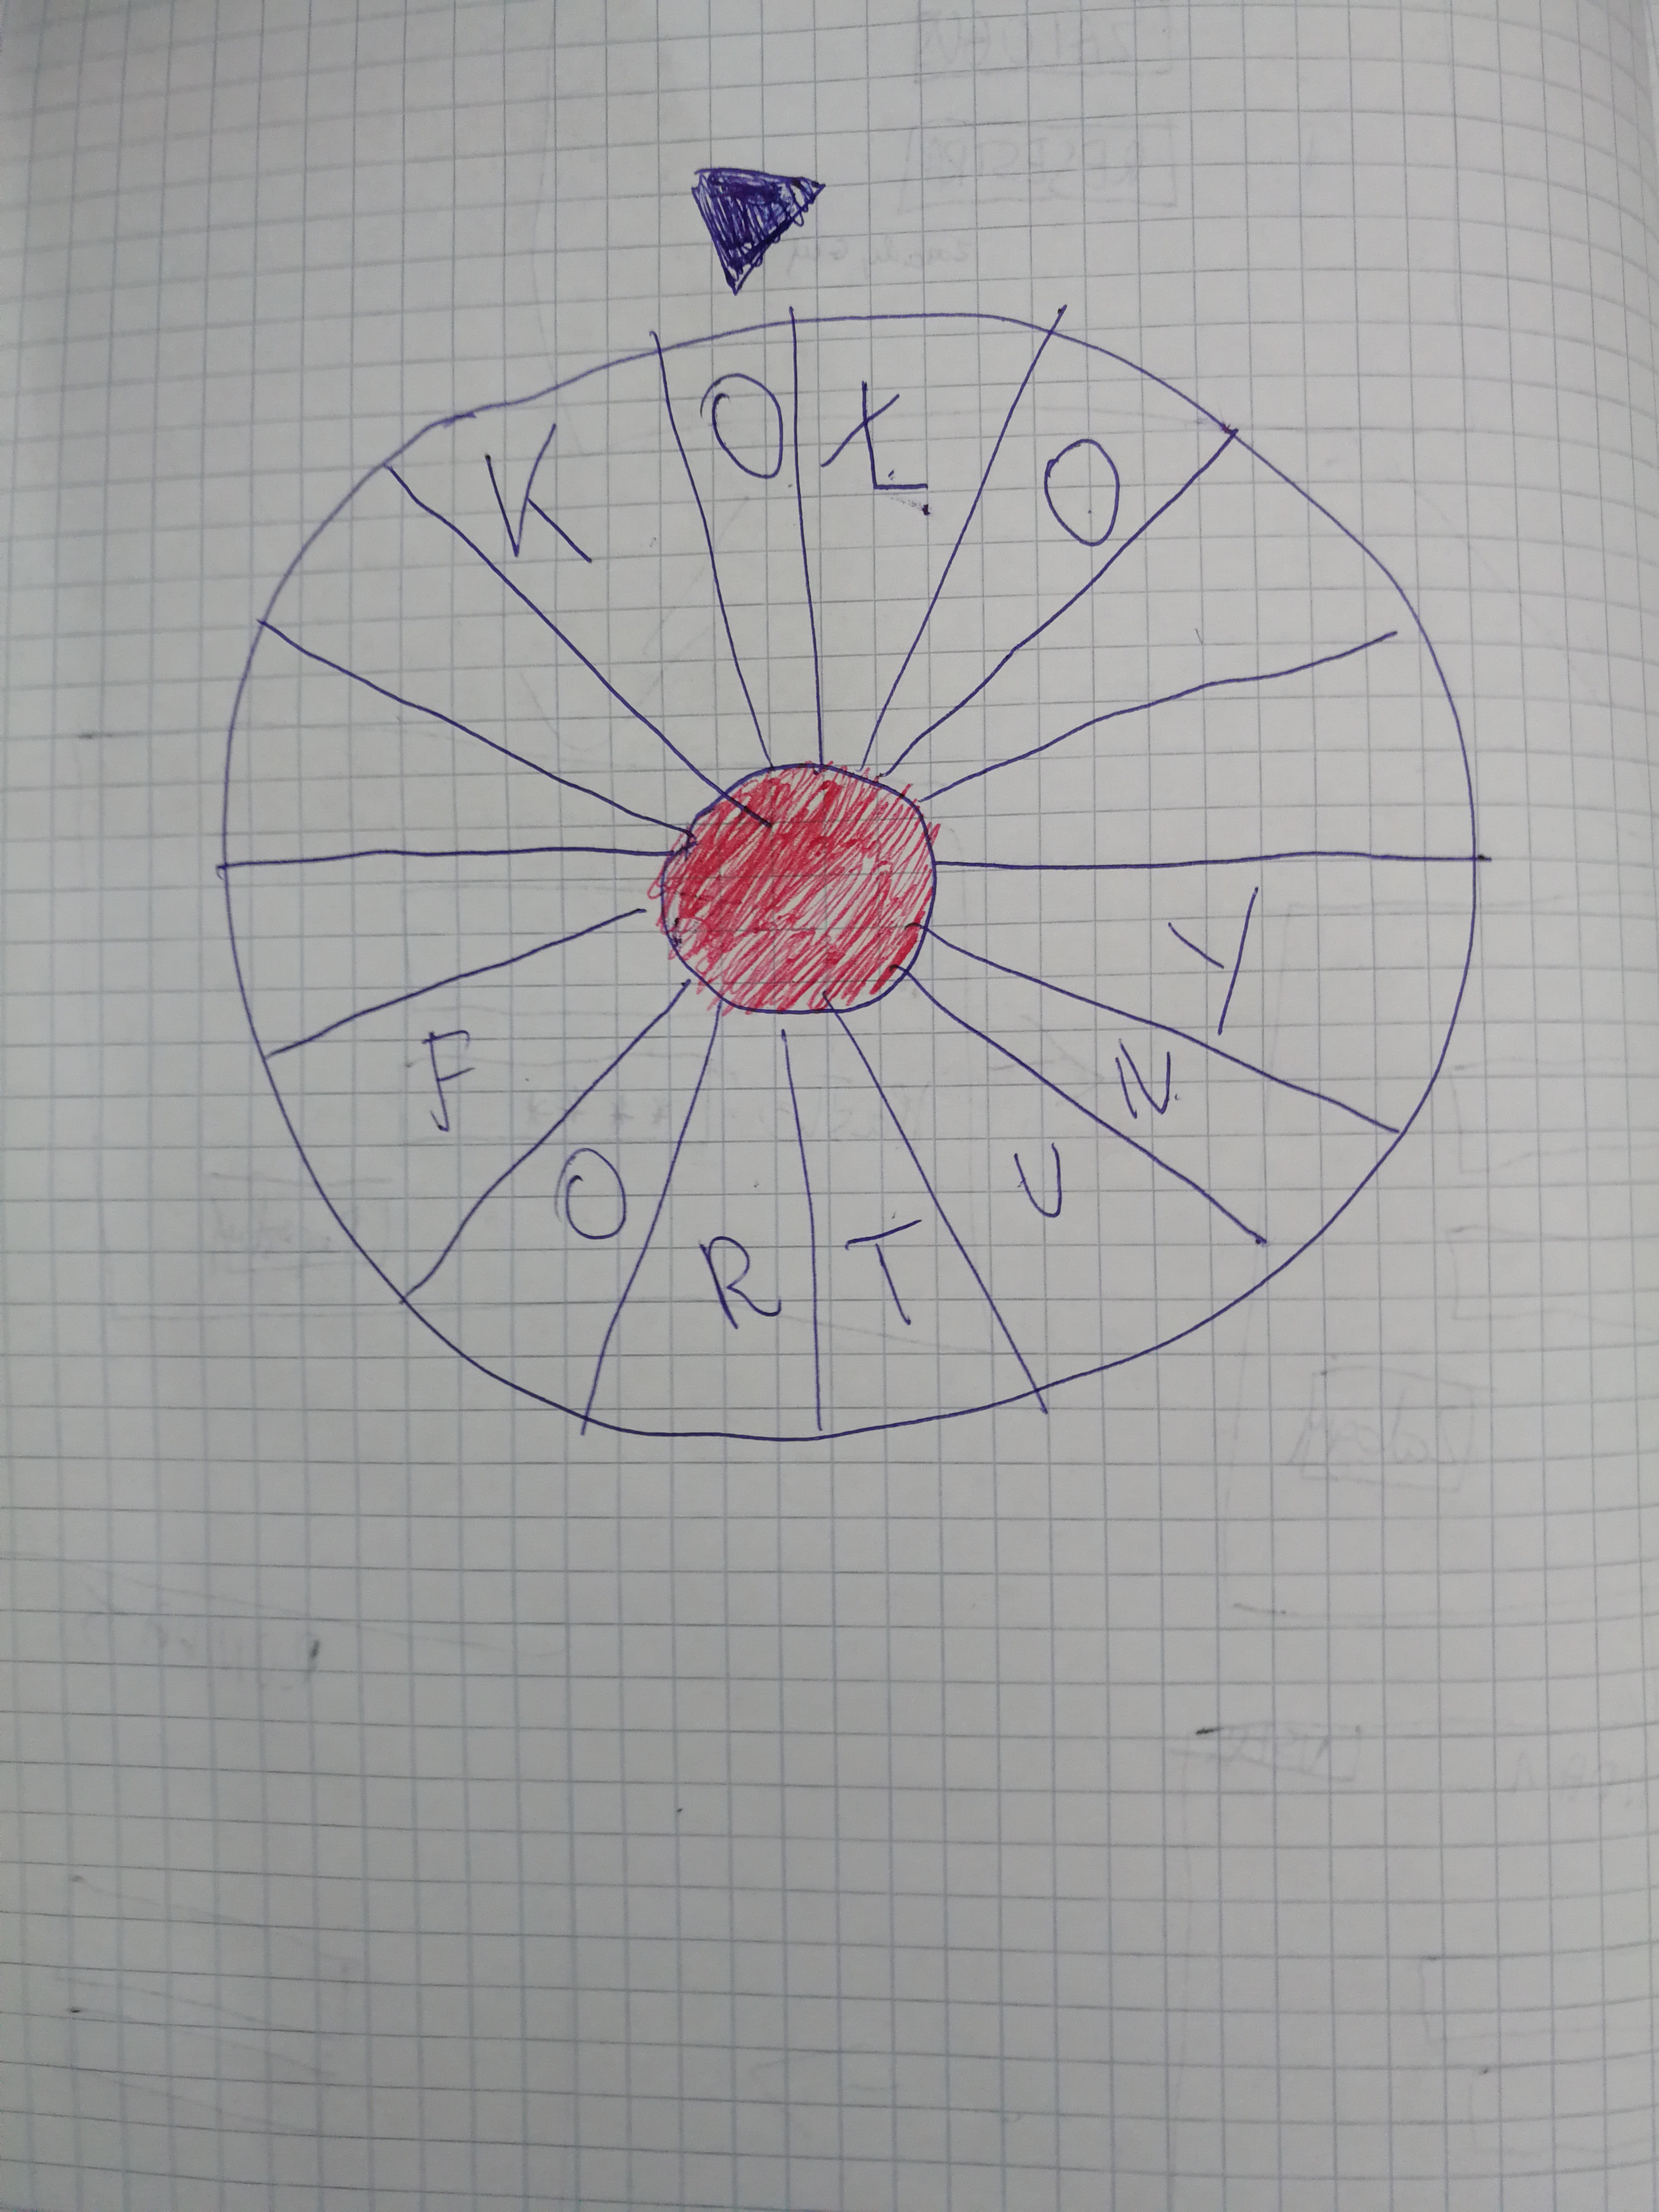 KOŁO
FORTUNY